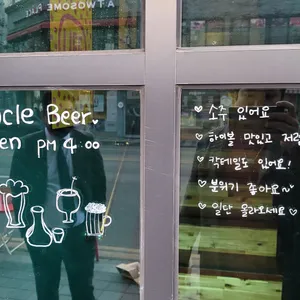 A TWOSOME PLACE
cle Beer
en PM 4:00
♡ 소주 있어요
♡ 하이볼 맛있고 저렴
♡ 칵테일도 있어요!
♡ 분위기 좋아요~
♡ 일단 올라오세요♡